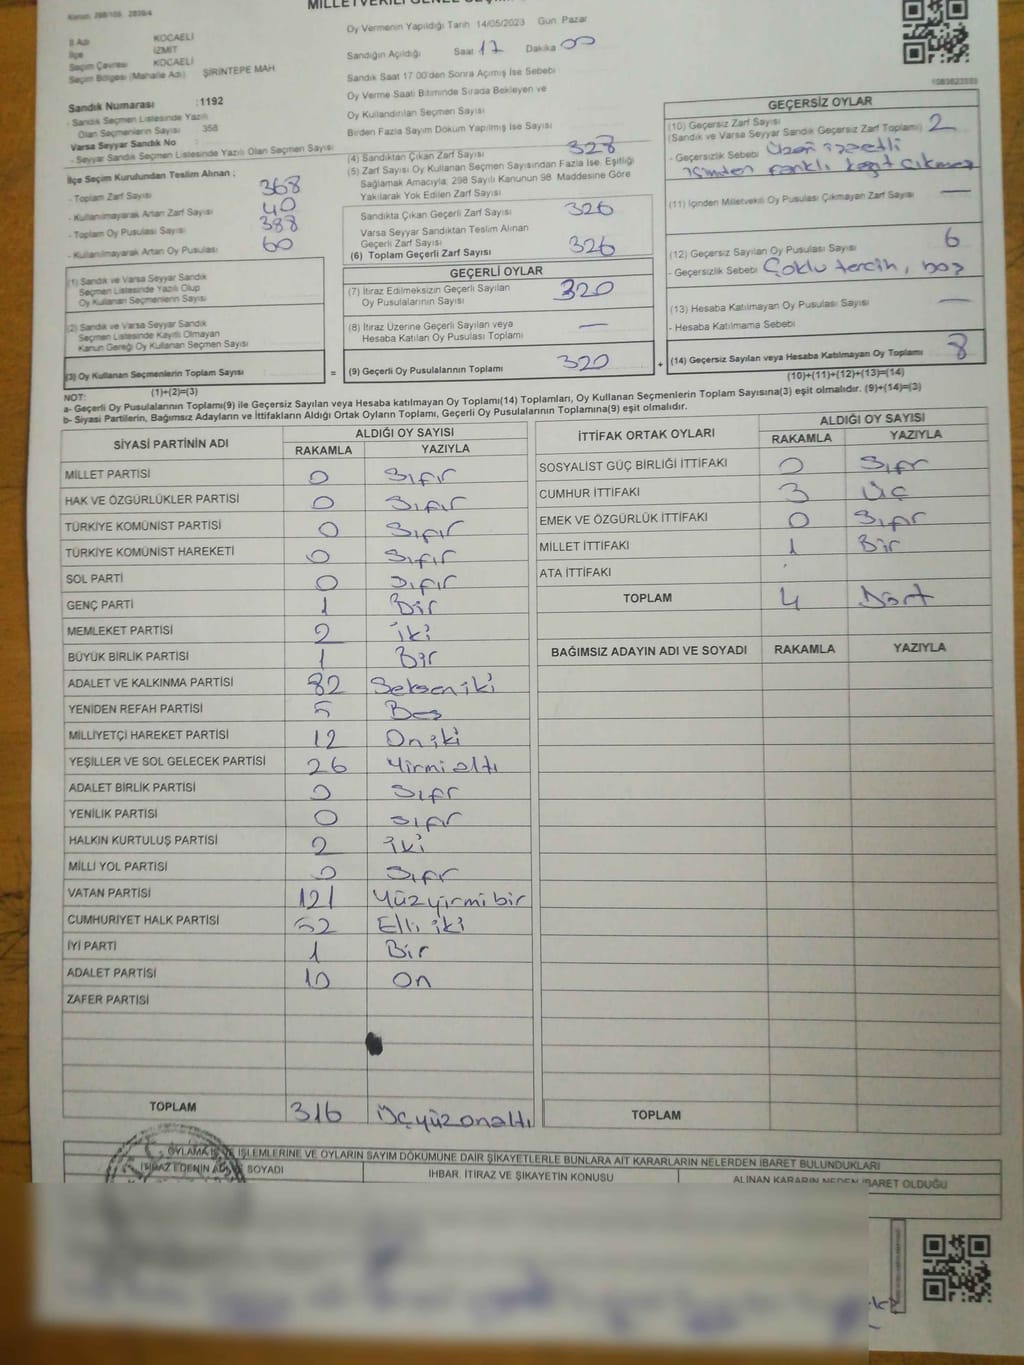 Kanun: 298/105, 2839/4
Oy Vermenin Yapıldığı Tarih 14/05/2023 Gun Pazar
İl Adı KOCAELİ
İlçe İZMİT
Seçim Çevresi KOCAELİ
Seçim Bölgesi (Mahalle Adı) ŞİRİNTEPE MAH
Sandık Numarası :1192
- Sandık Seçmen Listesinde Yazılı
Olan Seçmenlerin Sayısı 358
Varsa Seyyar Sandık No
- Seyyar Sandık Seçmen Listesinde Yazılı Olan Seçmen Sayısı
İlçe Seçim Kurulundan Teslim Alınan ;
- Toplam Zarf Sayısı 368
- Kullanılmayarak Artan Zarf Sayısı 40
- Toplam Oy Pusulası Sayısı 388
- Kullanılmayarak Artan Oy Pusulası 60
(1) Sandık ve Varsa Seyyar Sandık
Seçmen Listesinde Yazılı Olup
Oy Kullanan Seçmenlerin Sayısı
(2) Sandık ve Varsa Seyyar Sandık
Seçmen Listesinde Kayıtlı Olmayan
Kanun Gereği Oy Kullanan Seçmen Sayısı
(3) Oy Kullanan Seçmenlerin Toplam Sayısı =
(1)+(2)=(3)
Sandığın Açıldığı Saat 17 Dakika 00
Sandık Saat 17 00'den Sonra Açılmış İse Sebebi
Oy Verme Saati Bitiminde Sırada Bekleyen ve
Oy Kullandırılan Seçmen Sayısı
Birden Fazla Sayım Döküm Yapılmış İse Sayısı
(4) Sandıktan Çıkan Zarf Sayısı 328
(5) Zarf Sayısı Oy Kullanan Seçmen Sayısından Fazla İse, Eşitliği
Sağlamak Amacıyla; 298 Sayılı Kanunun 98. Maddesine Göre
Yakılarak Yok Edilen Zarf Sayısı
Sandıkta Çıkan Geçerli Zarf Sayısı 326
Varsa Seyyar Sandıktan Teslim Alınan
Geçerli Zarf Sayısı
(6) Toplam Geçerli Zarf Sayısı 326
GEÇERLİ OYLAR
(7) İtiraz Edilmeksizin Geçerli Sayılan
Oy Pusulalarının Sayısı 320
(8) İtiraz Üzerine Geçerli Sayılan veya
Hesaba Katılan Oy Pusulası Toplamı —
(9) Geçerli Oy Pusulalarının Toplamı 320 +
GEÇERSİZ OYLAR
(10) Geçersiz Zarf Sayısı
(Sandık ve Varsa Seyyar Sandık Geçersiz Zarf Toplamı) 2
- Geçersizlik Sebebi Üzeri işaretli
içinden farklı kağıt çıkması
(11) İçinden Milletvekili Oy Pusulası Çıkmayan Zarf Sayısı —
(12) Geçersiz Sayılan Oy Pusulası Sayısı 6
- Geçersizlik Sebebi Çoklu tercih, boş
(13) Hesaba Katılmayan Oy Pusulası Sayısı —
- Hesaba Katılmama Sebebi
(14) Geçersiz Sayılan veya Hesaba Katılmayan Oy Toplamı 8
(10)+(11)+(12)+(13)=(14)
NOT:
a- Geçerli Oy Pusulalarının Toplamı(9) ile Geçersiz Sayılan veya Hesaba katılmayan Oy Toplamı(14) Toplamları, Oy Kullanan Seçmenlerin Toplam Sayısına(3) eşit olmalıdır. (9)+(14)=(3)
b- Siyasi Partilerin, Bağımsız Adayların ve İttifakların Aldığı Ortak Oyların Toplamı, Geçerli Oy Pusulalarının Toplamına(9) eşit olmalıdır.
SİYASİ PARTİNİN ADI ALDIĞI OY SAYISI
RAKAMLA YAZIYLA
MİLLET PARTİSİ 0 Sıfır
HAK VE ÖZGÜRLÜKLER PARTİSİ 0 Sıfır
TÜRKİYE KOMÜNİST PARTİSİ 0 Sıfır
TÜRKİYE KOMÜNİST HAREKETİ 0 Sıfır
SOL PARTİ 0 Sıfır
GENÇ PARTİ 1 Bir
MEMLEKET PARTİSİ 2 iki
BÜYÜK BİRLİK PARTİSİ 1 Bir
ADALET VE KALKINMA PARTİSİ 82 Seksen iki
YENİDEN REFAH PARTİSİ 5 Beş
MİLLİYETÇİ HAREKET PARTİSİ 12 On iki
YEŞİLLER VE SOL GELECEK PARTİSİ 26 Yirmi altı
ADALET BİRLİK PARTİSİ 0 Sıfır
YENİLİK PARTİSİ 0 Sıfır
HALKIN KURTULUŞ PARTİSİ 2 iki
MİLLİ YOL PARTİSİ 0 Sıfır
VATAN PARTİSİ 121 Yüzyirmi bir
CUMHURİYET HALK PARTİSİ 52 Elli iki
İYİ PARTİ 1 Bir
ADALET PARTİSİ 10 On
ZAFER PARTİSİ
TOPLAM 316 Üçyüzonaltı
İTTİFAK ORTAK OYLARI ALDIĞI OY SAYISI
RAKAMLA YAZIYLA
SOSYALİST GÜÇ BİRLİĞİ İTTİFAKI 0 Sıfır
CUMHUR İTTİFAKI 3 Üç
EMEK VE ÖZGÜRLÜK İTTİFAKI 0 Sıfır
MİLLET İTTİFAKI 1 Bir
ATA İTTİFAKI
TOPLAM 4 Dört
BAĞIMSIZ ADAYIN ADI VE SOYADI RAKAMLA YAZIYLA
TOPLAM
OYLAMA İŞLEMLERİNE VE OYLARIN SAYIM DÖKÜMÜNE DAİR ŞİKAYETLERLE BUNLARA AİT KARARLARIN NELERDEN İBARET BULUNDUKLARI
İTİRAZ EDENİN ADI VE SOYADI İHBAR, İTİRAZ VE ŞİKAYETİN KONUSU ALINAN KARARIN NEDEN İBARET OLDUĞU